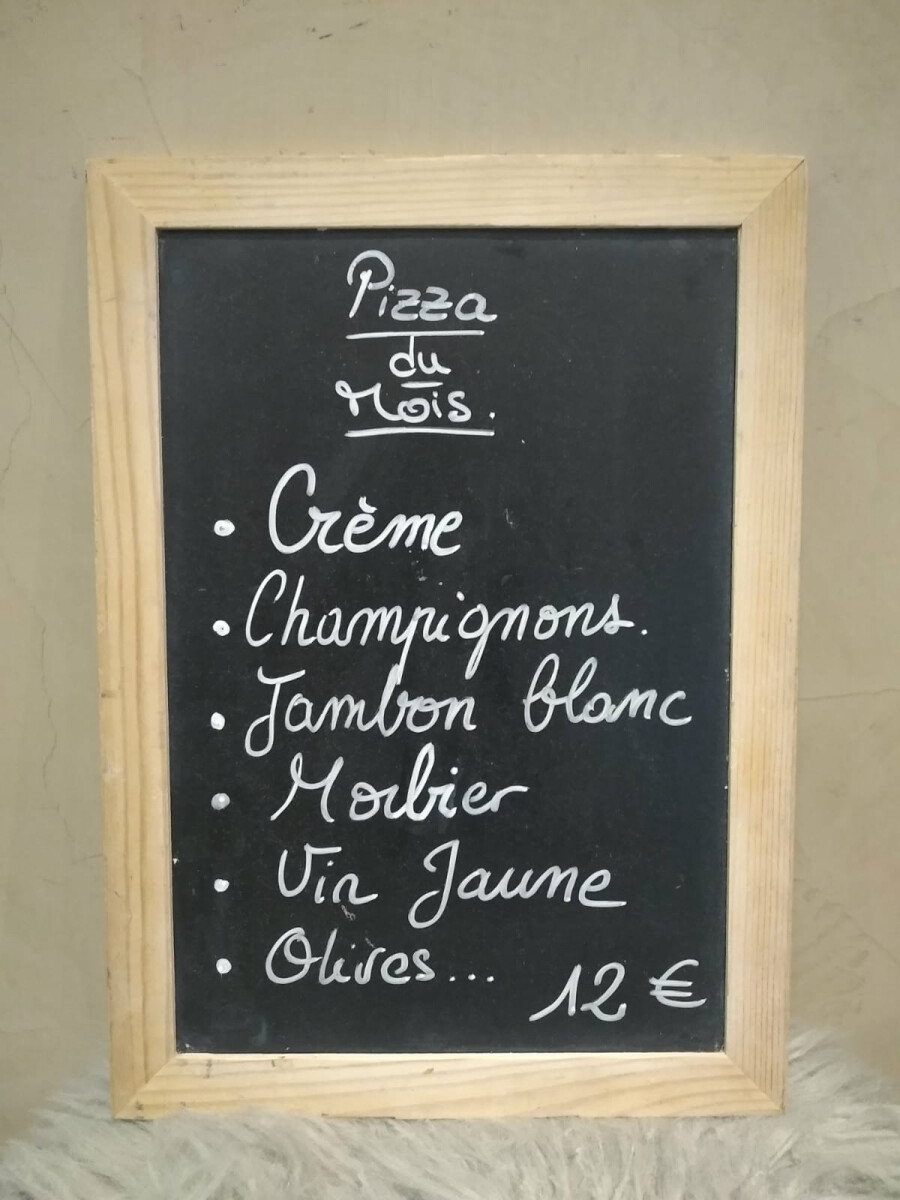 Pizza
du
Mois.
• Crème
• Champignons.
• Jambon blanc
• Morbier
• Vin Jaune
• Olives...
12 €